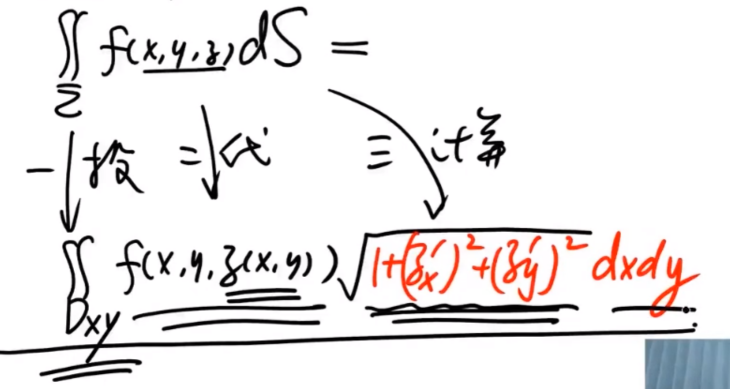 ∬_Σ f(x,y,z)dS =
一投 二代 三计算
∬_{Dxy} f(x,y,z(x,y))√(1+(z′x)²+(z′y)²) dxdy